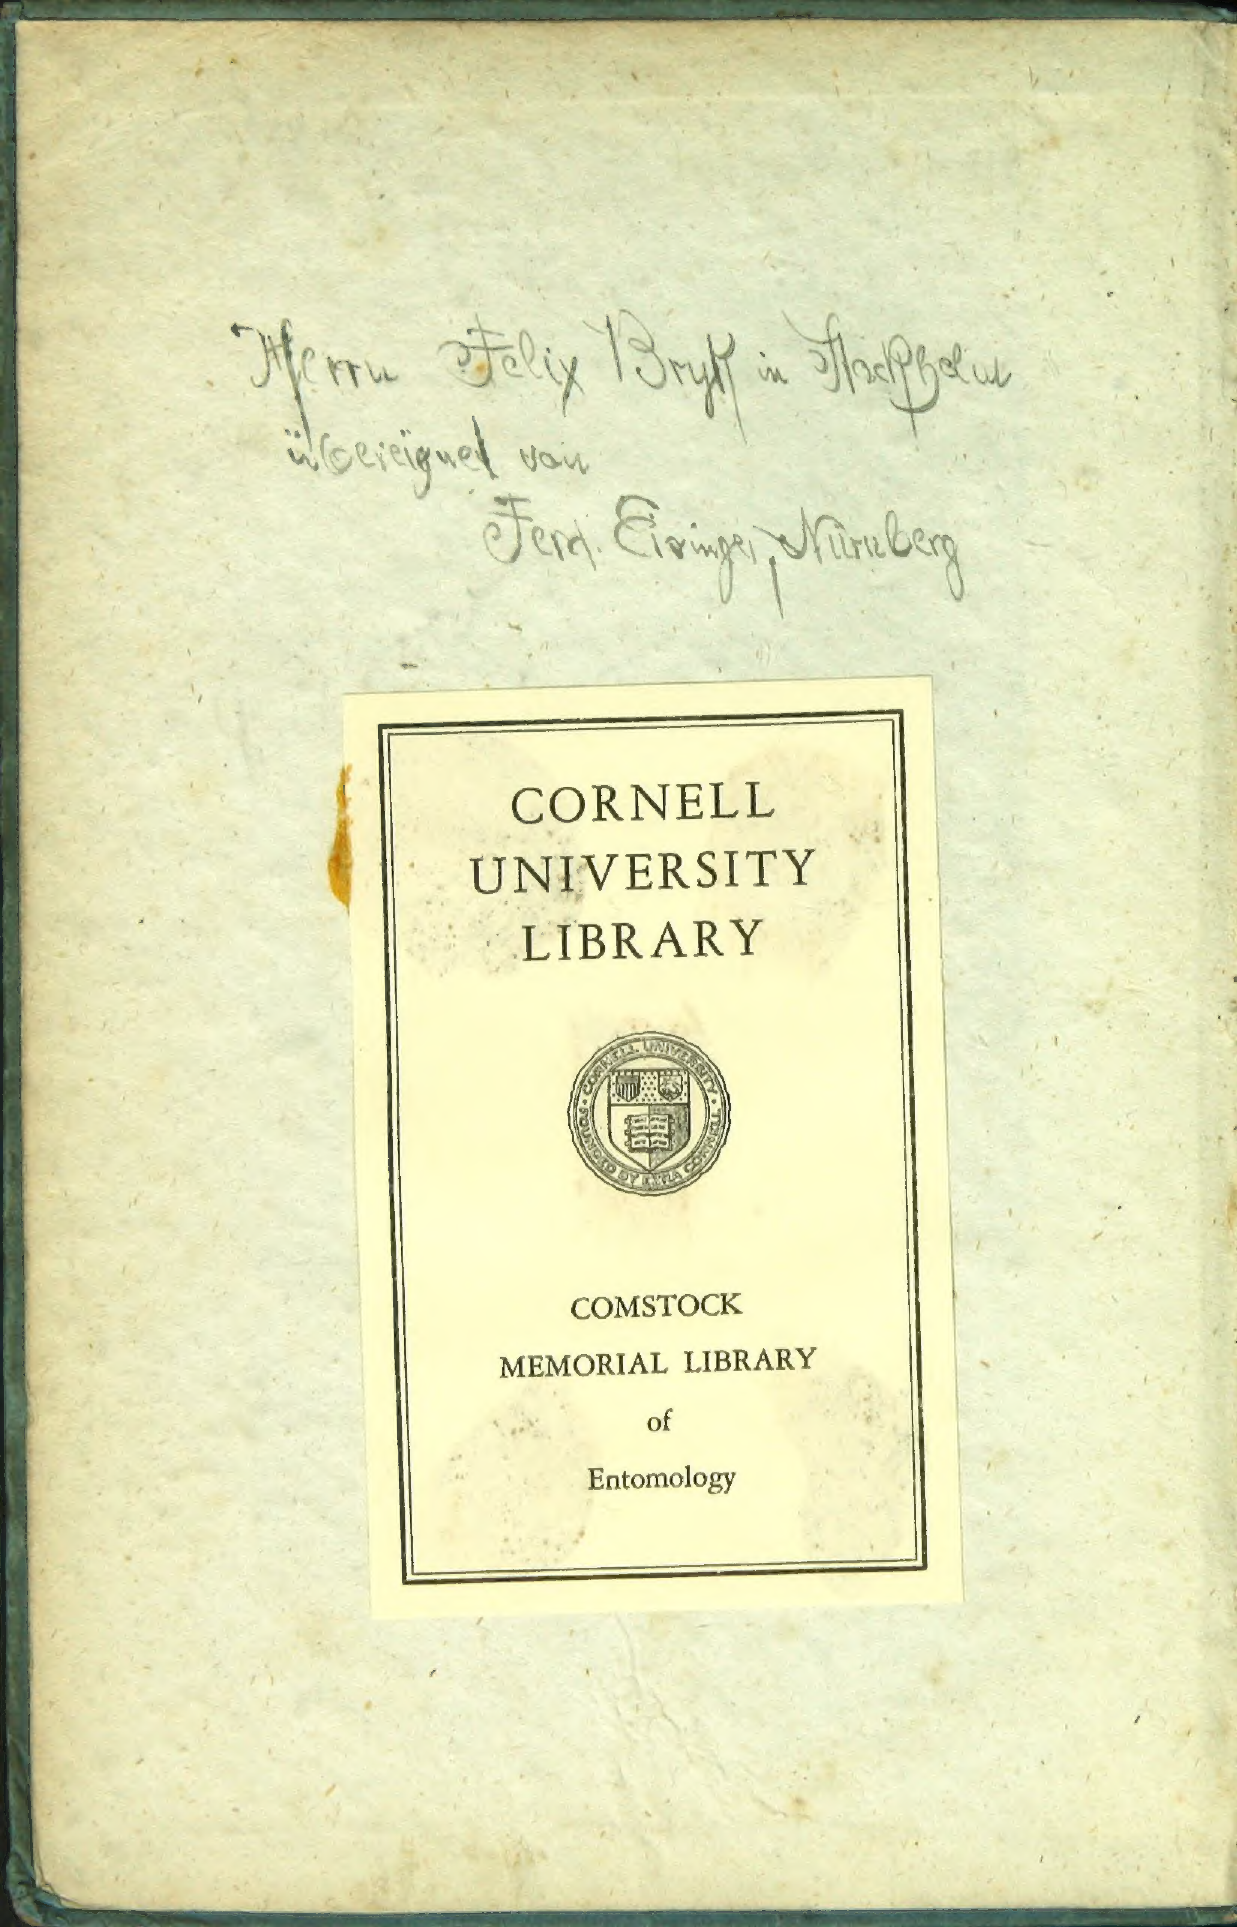 Herrn Felix Bryk in Stockholm
übereignet von
Ferd. Eisinger, Nürnberg
CORNELL
UNIVERSITY
LIBRARY
CORNELL UNIVERSITY · FOUNDED BY EZRA CORNELL ·
COMSTOCK
MEMORIAL LIBRARY
of
Entomology